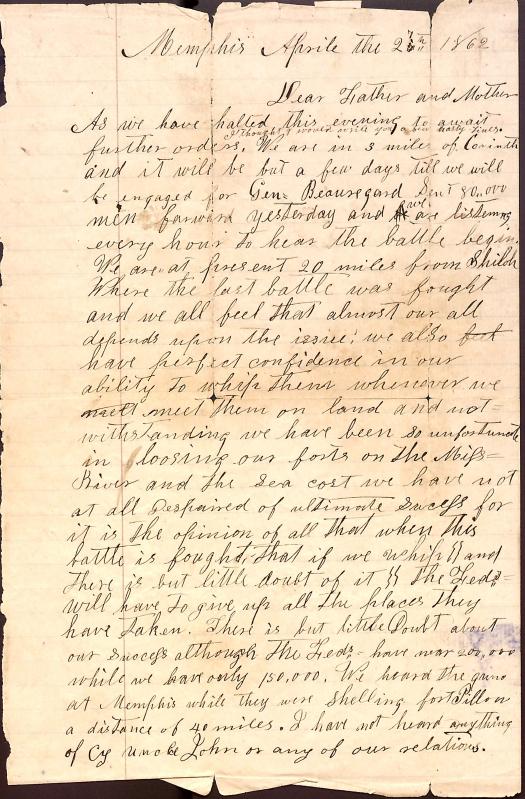 Memphis Aprile the 2 th 1862
Dear Father and Mother
As we have halted this evening to await
I thought I would write you a few hasty lines.
further orders. We are in 3 miles of Corinth
and it will be but a few days till we will
be engaged for Gen= Beauregard sent 80,000
men forward yesterday and we are listening
every hour to hear the battle begin.
We are at present 20 miles from Shiloh
Where the last battle was fought
and we all feel that almost our all
depends upon the issue; we also feel
have perfect confidence in our
ability to whip them whenever we
meet meet them on land and not=
withstanding we have been so unfortunate
in loosing our forts on the Miss=
River and the sea cost we have not
at all despaired of ultimate success for
it is the opinion of all that when this
battle is fought, that if we whip (( and
there is but little doubt of it )) the Feds=
will have to give up all the places they
have taken. There is but little Doubt about
our success although the Feds= have near 200,000
while we have only 150,000. We heard the guns
at Memphis while they were shelling fort Pillow
a distance of 40 miles. I have not heard anything
of Cy uncle John or any of our relations.